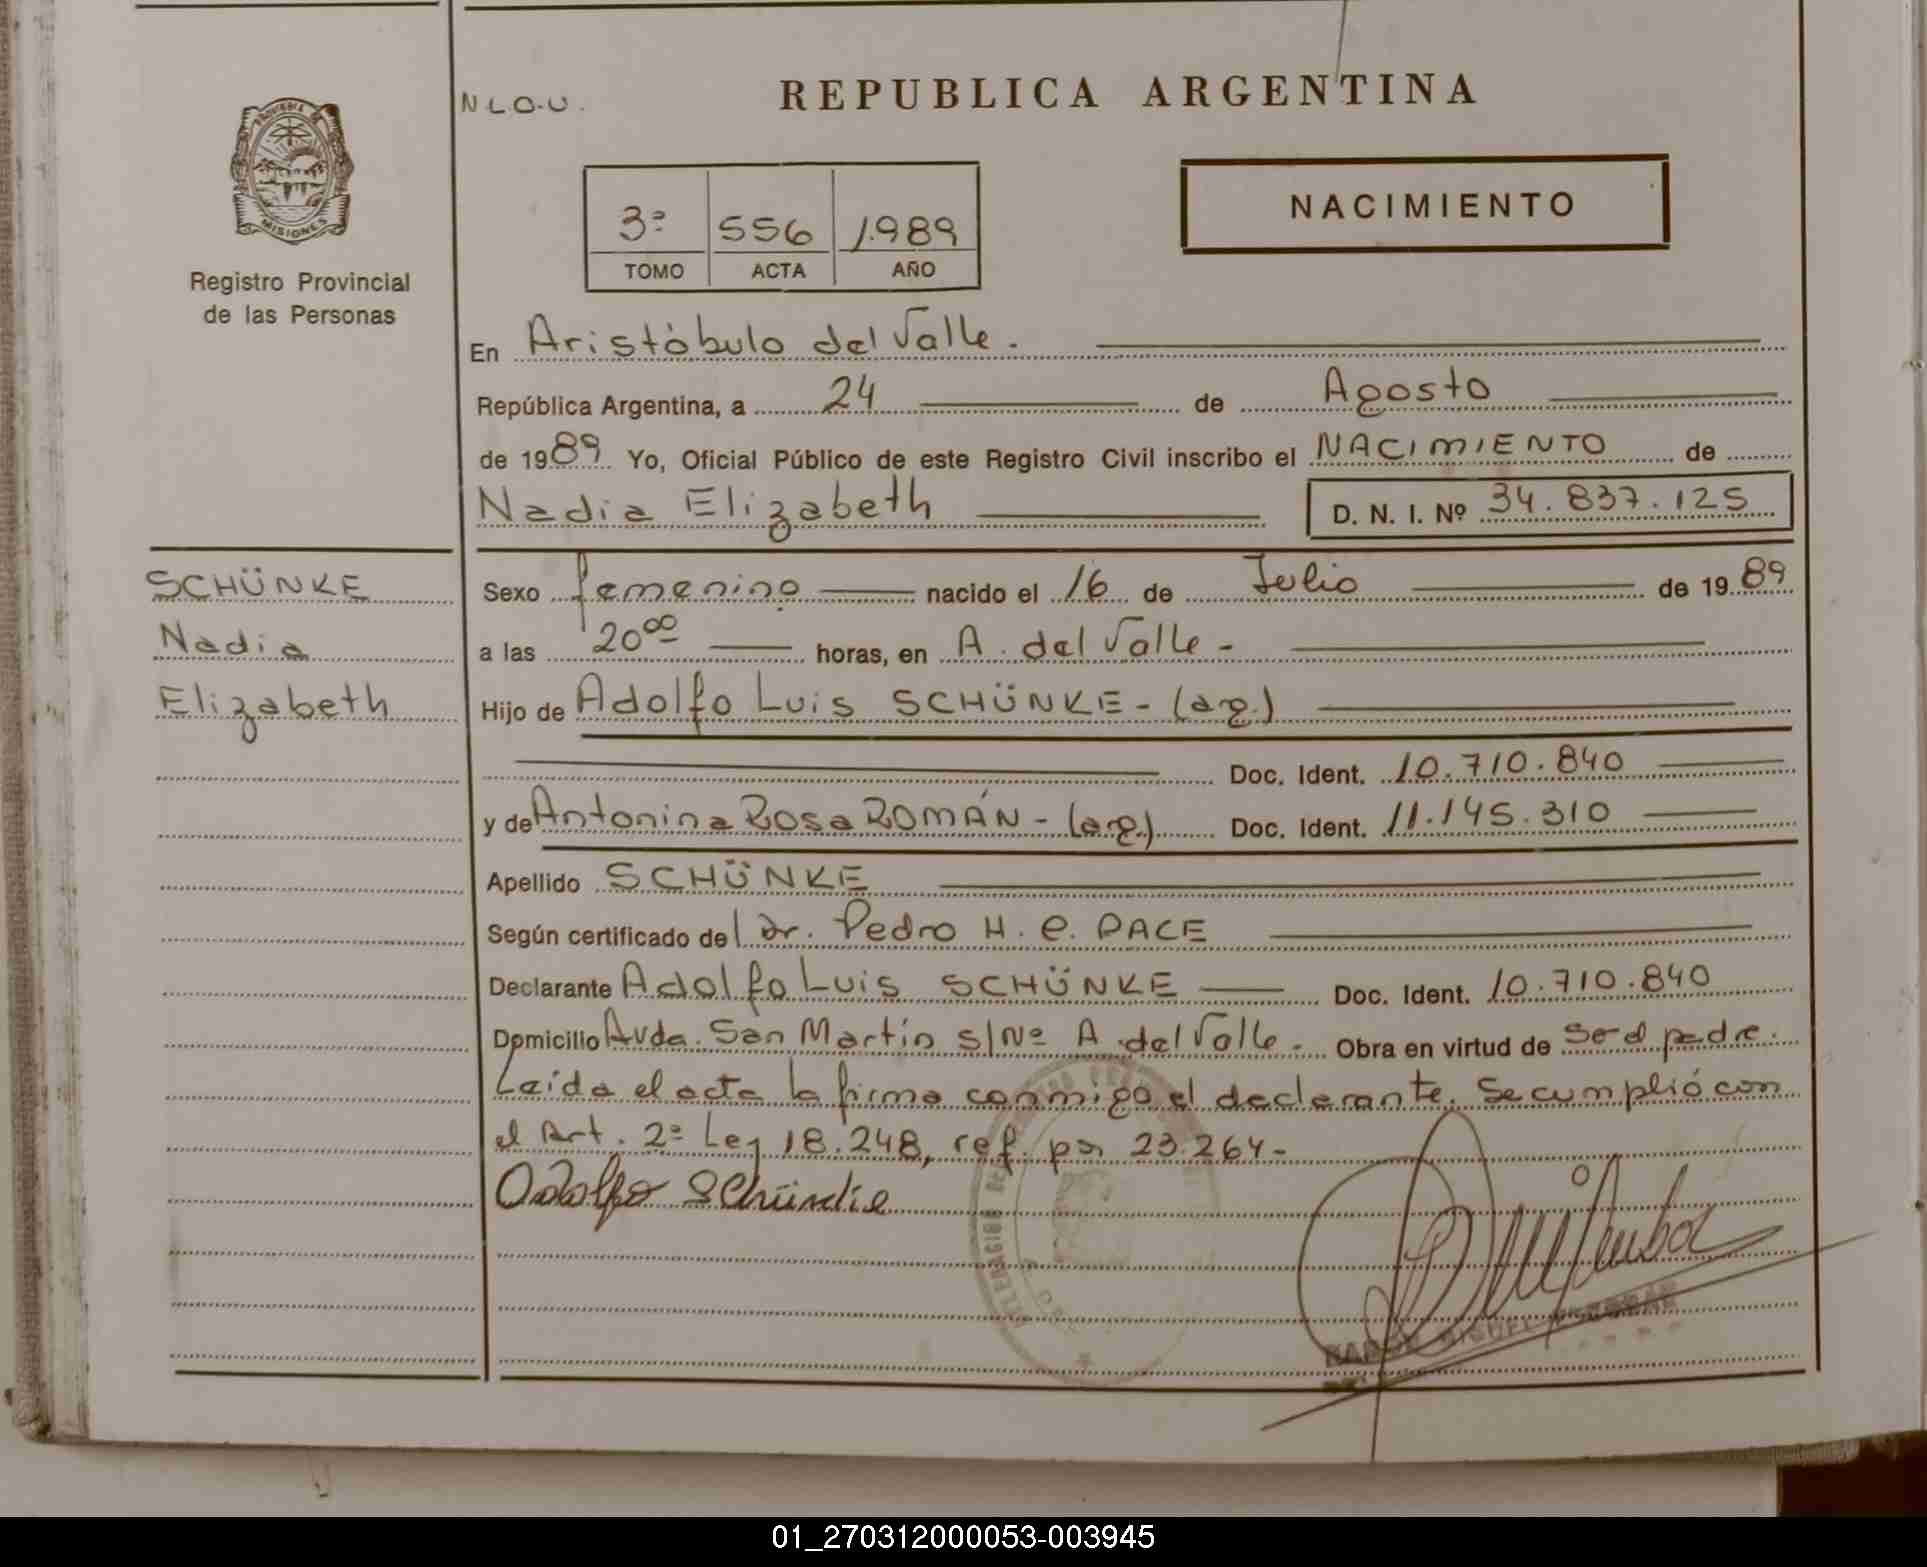 N L O.U.
REPUBLICA ARGENTINA
PROVINCIA DE
MISIONES
Registro Provincial
de las Personas
3º 556 1.989
TOMO ACTA AÑO
NACIMIENTO
En Aristóbulo del Valle.
República Argentina, a 24 de Agosto
de 1989 Yo, Oficial Público de este Registro Civil inscribo el NACIMIENTO de
Nadia Elizabeth D. N. I. Nº 34.837.125
SCHÜNKE
Nadia
Elizabeth
Sexo femenino nacido el 16 de Julio de 1989
a las 20⁰⁰ horas, en A. del Valle -
Hijo de Adolfo Luis SCHÜNKE - (arg.)
Doc. Ident. 10.710.840
y de Antonina Rosa ROMÁN - (arg.) Doc. Ident. 11.145.310
Apellido SCHÜNKE
Según certificado del Dr. Pedro H. C. PACE
Declarante Adolfo Luis SCHÜNKE Doc. Ident. 10.710.840
Domicilio Avda. San Martín s/Nº A. del Valle. Obra en virtud de ser el padre.
Leída el acta la firma conmigo el declarante. Se cumplió con
el Art. 2º Ley 18.248, ref. por 23.264-
Adolfo Schünke
01_270312000053-003945